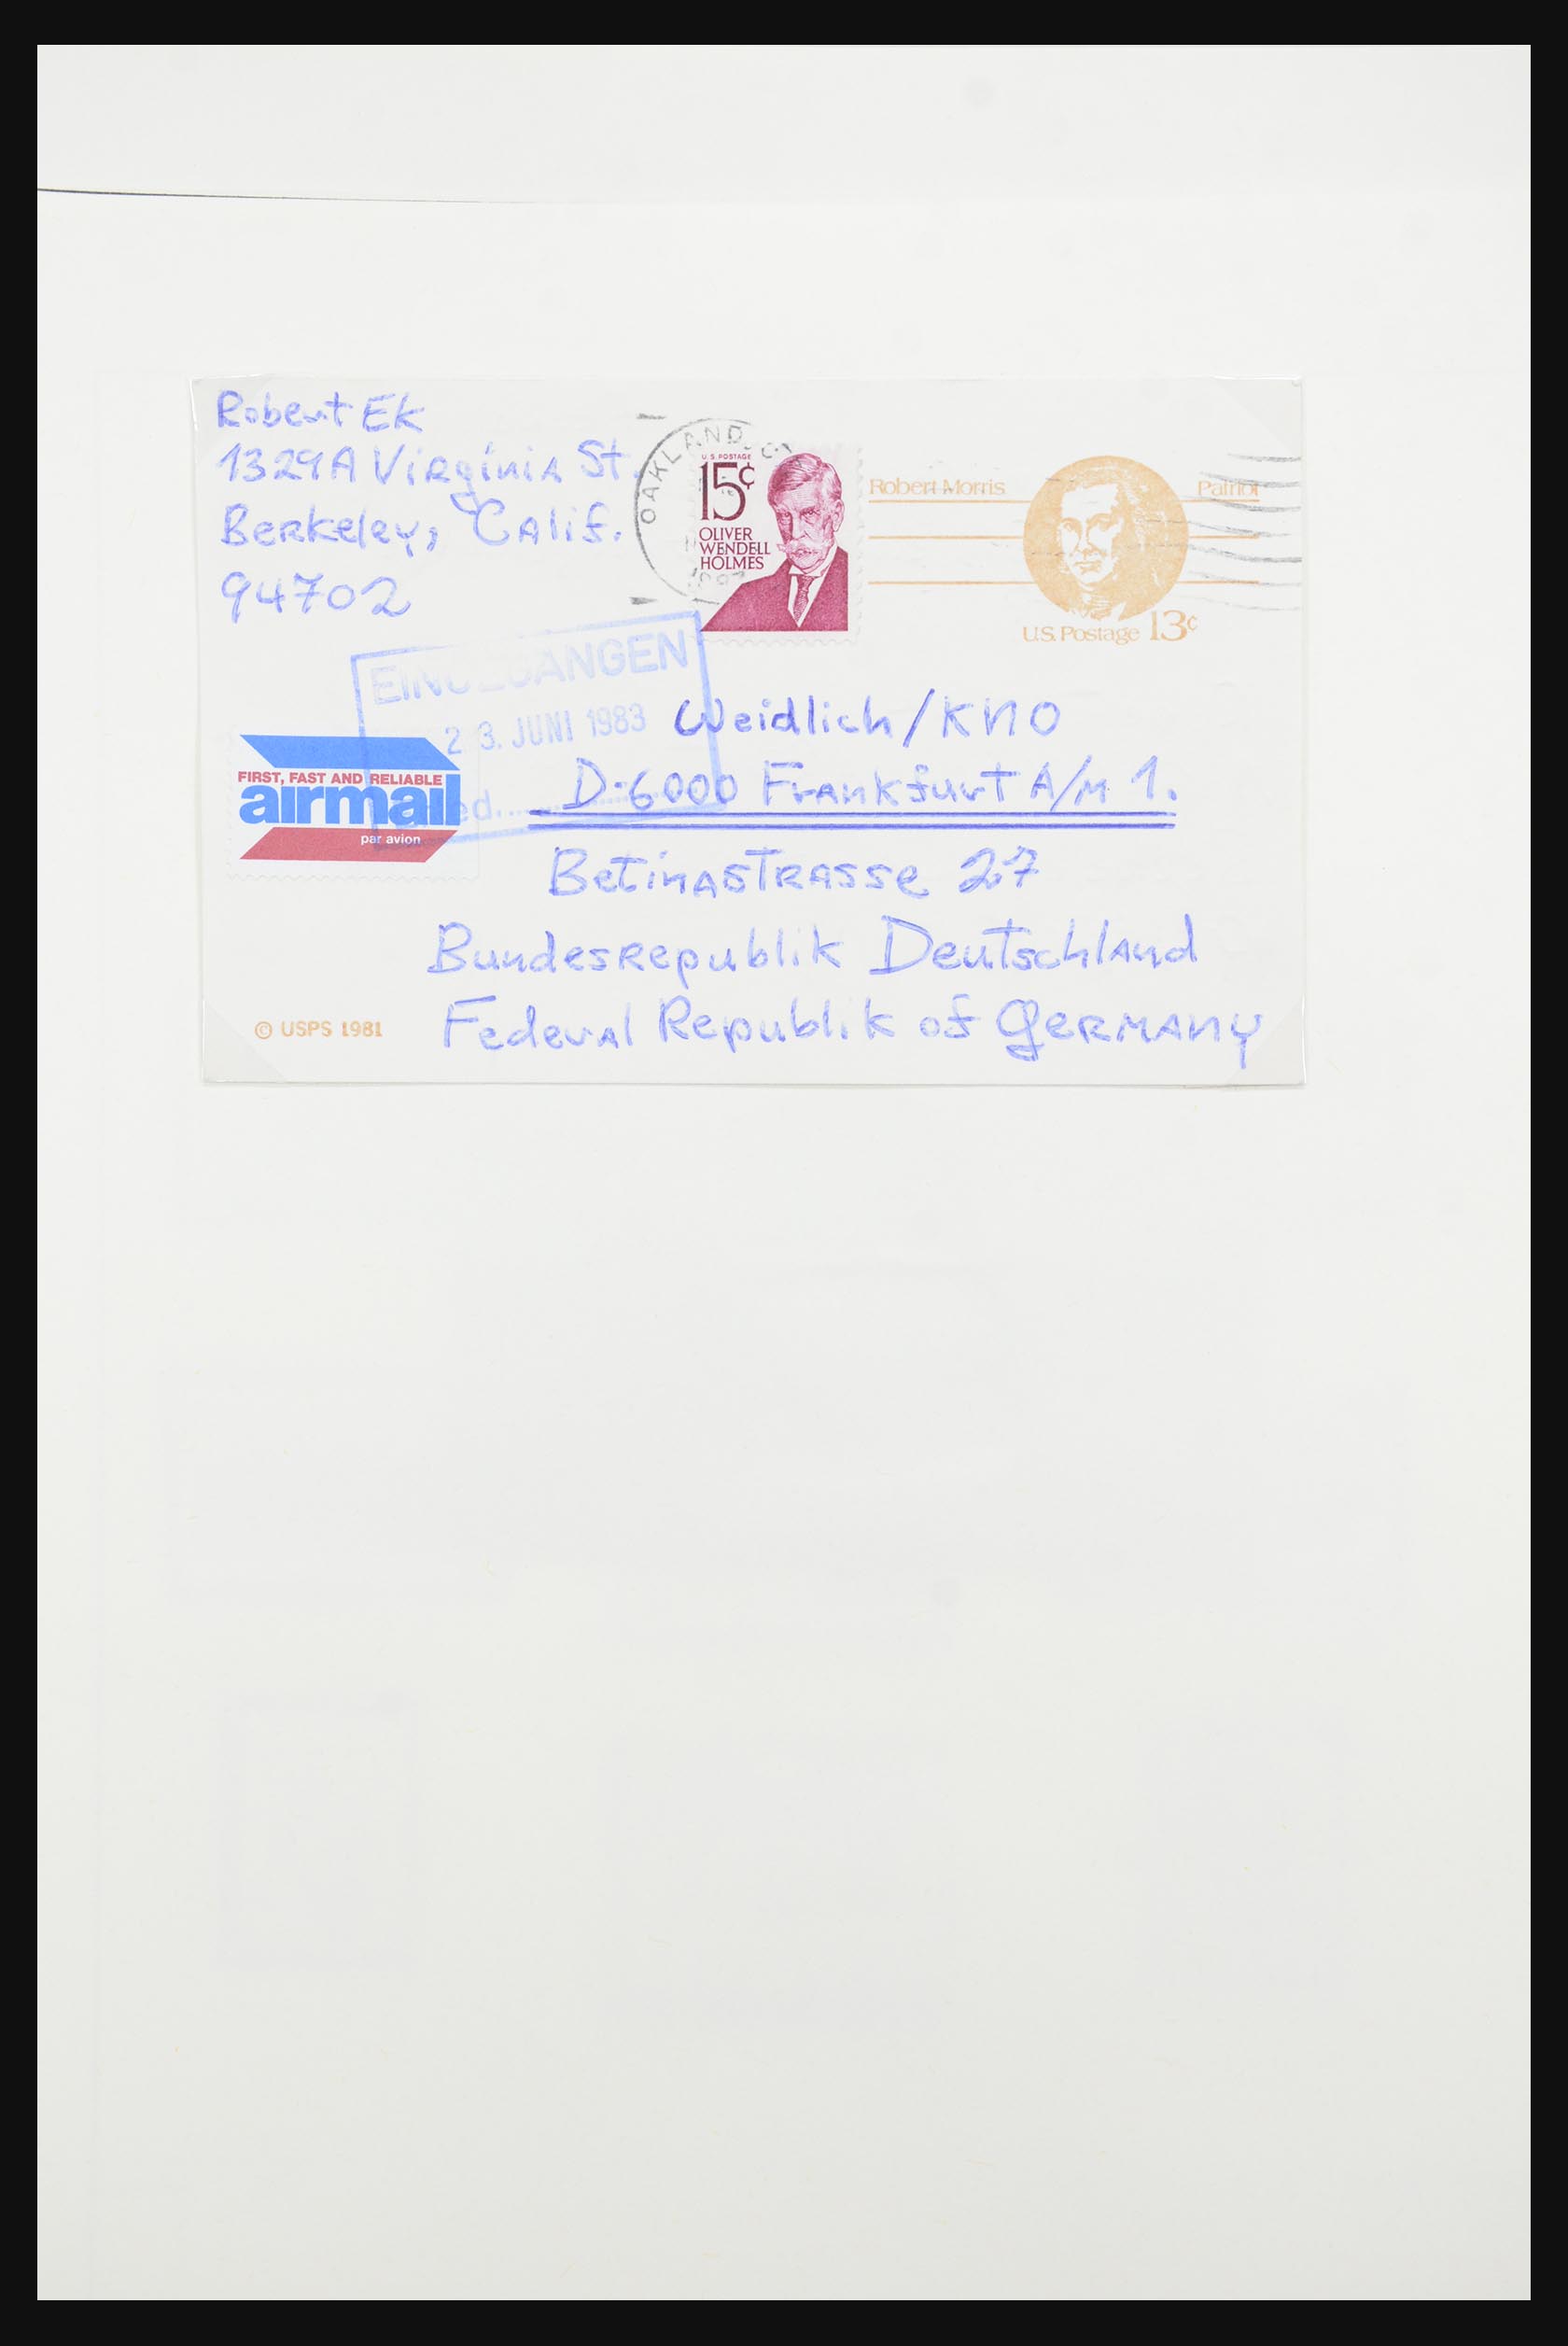 Robert Ek
1329A Virginia St.
Berkeley, Calif.
94702
OAKLAND, CA
U.S. POSTAGE
15¢
OLIVER
WENDELL
HOLMES
Robert Morris
Patriot
U.S. Postage 13¢
EINGEGANGEN
23. JUNI 1983
FIRST, FAST AND RELIABLE
airmail
par avion
Weidlich/KNO
D-6000 Frankfurt A/M 1.
Betinastrasse 27
Bundesrepublik Deutschland
Federal Republik of Germany
© USPS 1981